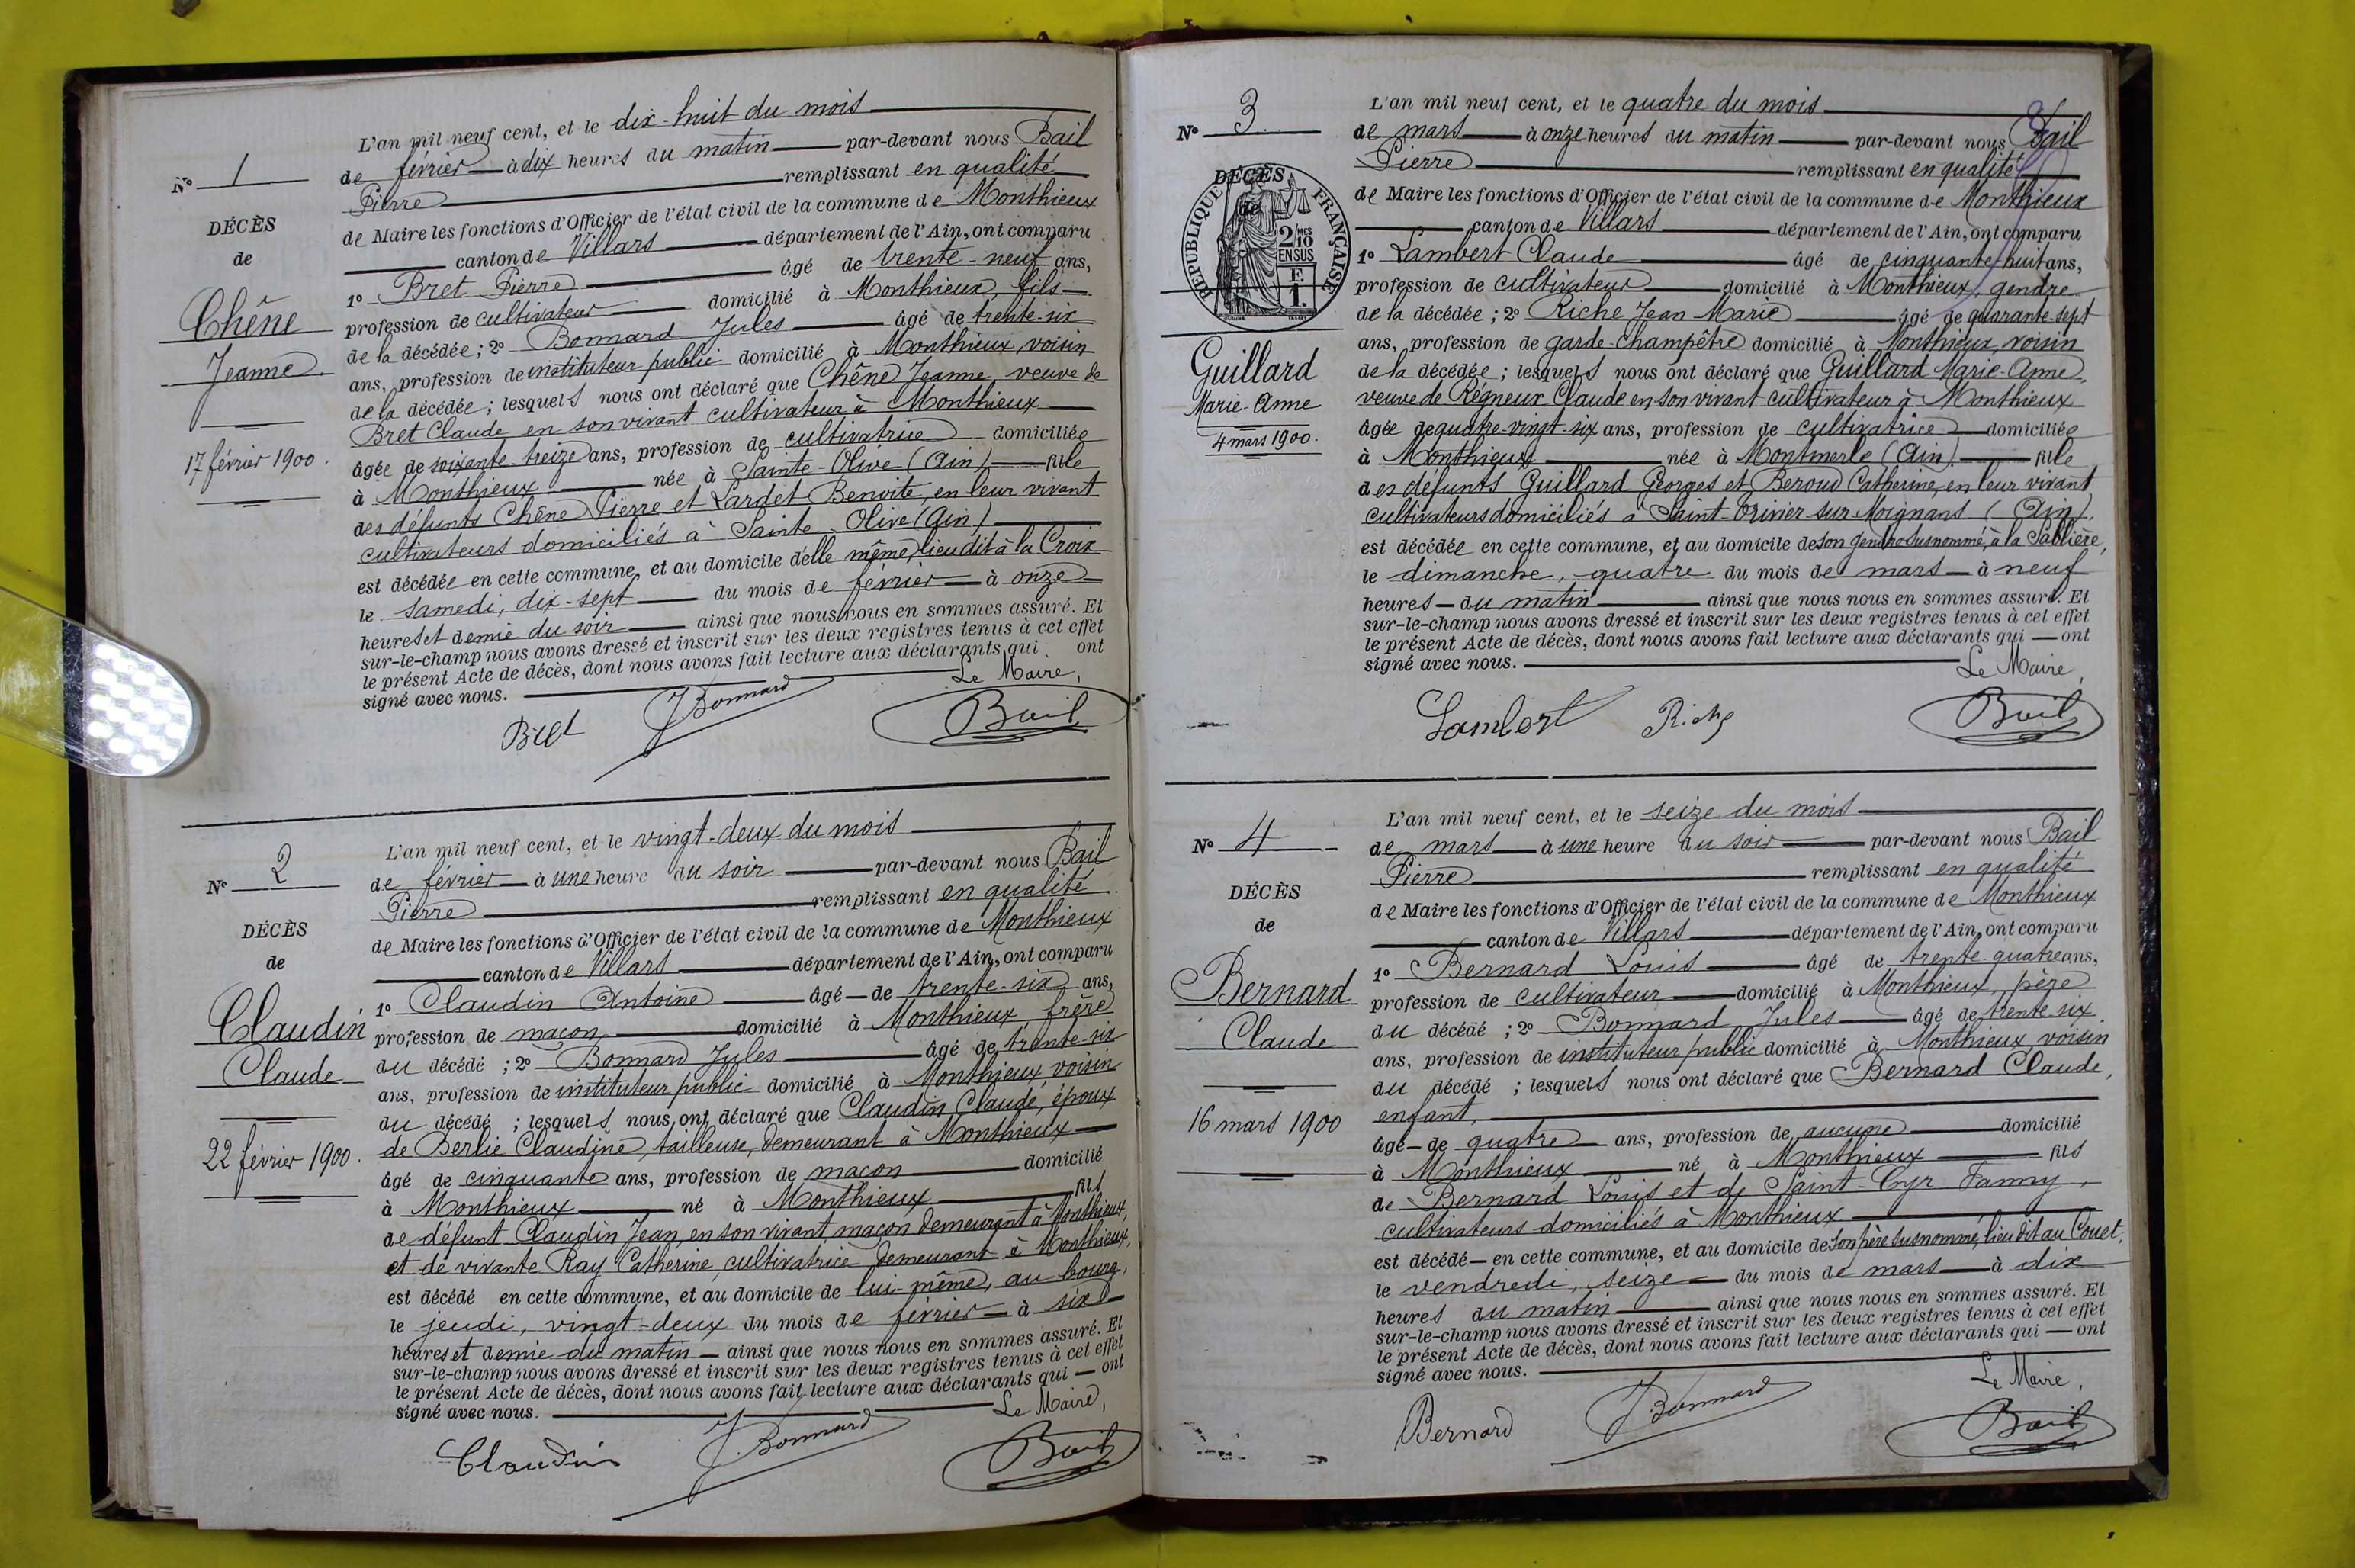 N° 1
DÉCÈS
de
Chêne
Jeanne
17 février 1900.
L'an mil neuf cent, et le dix-huit du mois
de février à dix heures du matin par-devant nous Bail
Pierre remplissant en qualité
de Maire les fonctions d'Officier de l'état civil de la commune de Monthieux
canton de Villars département de l'Ain, ont comparu
1° Bret Pierre âgé de trente-neuf ans,
profession de cultivateur domicilié à Monthieux, fils
de la décédée ; 2° Bonnard Jules âgé de trente-six
ans, profession de instituteur public domicilié à Monthieux, voisin
de la décédée ; lesquels nous ont déclaré que Chêne Jeanne, veuve de
Bret Claude en son vivant cultivateur à Monthieux
âgée de soixante-treize ans, profession de cultivatrice domiciliée
à Monthieux née à Sainte-Olive (Ain) fille
des défunts Chêne Pierre et Lardet Benoite, en leur vivant
cultivateurs domiciliés à Sainte-Olive (Ain)
est décédée en cette commune, et au domicile d'elle même, lieu dit à la Croix
le samedi, dix-sept du mois de février à onze
heures et demie du soir ainsi que nous nous en sommes assuré. Et
sur-le-champ nous avons dressé et inscrit sur les deux registres tenus à cet effet
le présent Acte de décès, dont nous avons fait lecture aux déclarants qui ont
signé avec nous. Le Maire,
Bret J Bonnard Bail
N° 2
DÉCÈS
de
Claudin
Claude
22 février 1900.
L'an mil neuf cent, et le vingt-deux du mois
de février à une heure du soir par-devant nous Bail
Pierre remplissant en qualité
de Maire les fonctions d'Officier de l'état civil de la commune de Monthieux
canton de Villars département de l'Ain, ont comparu
1° Claudin Antoine âgé de trente-six ans,
profession de maçon domicilié à Monthieux, frère
du décédé ; 2° Bonnard Jules âgé de trente-six
ans, profession de instituteur public domicilié à Monthieux, voisin
du décédé ; lesquels nous ont déclaré que Claudin Claude, époux
de Berlie Claudine, tailleuse, demeurant à Monthieux
âgé de cinquante ans, profession de maçon domicilié
à Monthieux né à Monthieux fils
de défunt Claudin Jean, en son vivant maçon demeurant à Monthieux,
et de vivante Ray Catherine, cultivatrice demeurant à Monthieux,
est décédé en cette commune, et au domicile de lui-même, au bourg,
le jeudi, vingt-deux du mois de février à six
heures et demie du matin ainsi que nous nous en sommes assuré. Et
sur-le-champ nous avons dressé et inscrit sur les deux registres tenus à cet effet
le présent Acte de décès, dont nous avons fait lecture aux déclarants qui ont
signé avec nous. Le Maire,
Claudin J Bonnard Bail
N° 3
DÉCÈS
de
RÉPUBLIQUE FRANÇAISE
2/10 MES
EN SUS
F
1.
Guillard
Marie-Anne
4 mars 1900.
L'an mil neuf cent, et le quatre du mois
de mars à onze heures du matin par-devant nous Bail
Pierre remplissant en qualité
de Maire les fonctions d'Officier de l'état civil de la commune de Monthieux
canton de Villars département de l'Ain, ont comparu
1° Lambert Claude âgé de cinquante-huit ans,
profession de cultivateur domicilié à Monthieux, gendre
de la décédée ; 2° Riche Jean Marie âgé de quarante-sept
ans, profession de garde-champêtre domicilié à Monthieux, voisin
de la décédée ; lesquels nous ont déclaré que Guillard Marie-Anne,
veuve de Régneux Claude en son vivant cultivateur à Monthieux
âgée de quatre-vingt-six ans, profession de cultivatrice domiciliée
à Monthieux née à Montmerle (Ain) fille
des défunts Guillard Georges et Beroud Catherine, en leur vivant
cultivateurs domiciliés à Saint-Trivier-sur-Moignans (Ain).
est décédée en cette commune, et au domicile de son gendre susnommé, à la Sablière,
le dimanche, quatre du mois de mars à neuf
heures du matin ainsi que nous nous en sommes assuré. Et
sur-le-champ nous avons dressé et inscrit sur les deux registres tenus à cet effet
le présent Acte de décès, dont nous avons fait lecture aux déclarants qui ont
signé avec nous. Le Maire,
Lambert Riche Bail
N° 4
DÉCÈS
de
Bernard
Claude
16 mars 1900
L'an mil neuf cent, et le seize du mois
de mars à une heure du soir par-devant nous Bail
Pierre remplissant en qualité
de Maire les fonctions d'Officier de l'état civil de la commune de Monthieux
canton de Villars département de l'Ain, ont comparu
1° Bernard Louis âgé de trente-quatre ans,
profession de cultivateur domicilié à Monthieux, père
du décédé ; 2° Bonnard Jules âgé de trente six
ans, profession de instituteur public domicilié à Monthieux, voisin
du décédé ; lesquels nous ont déclaré que Bernard Claude,
enfant,
âgé de quatre ans, profession de aucune domicilié
à Monthieux né à Monthieux fils
de Bernard Louis et de Saint-Cyr Fanny,
cultivateurs domiciliés à Monthieux
est décédé en cette commune, et au domicile de son père susnommé, lieu dit au Couet,
le vendredi, seize du mois de mars à dix
heures du matin ainsi que nous nous en sommes assuré. Et
sur-le-champ nous avons dressé et inscrit sur les deux registres tenus à cet effet
le présent Acte de décès, dont nous avons fait lecture aux déclarants qui ont
signé avec nous. Le Maire,
Bernard J Bonnard Bail